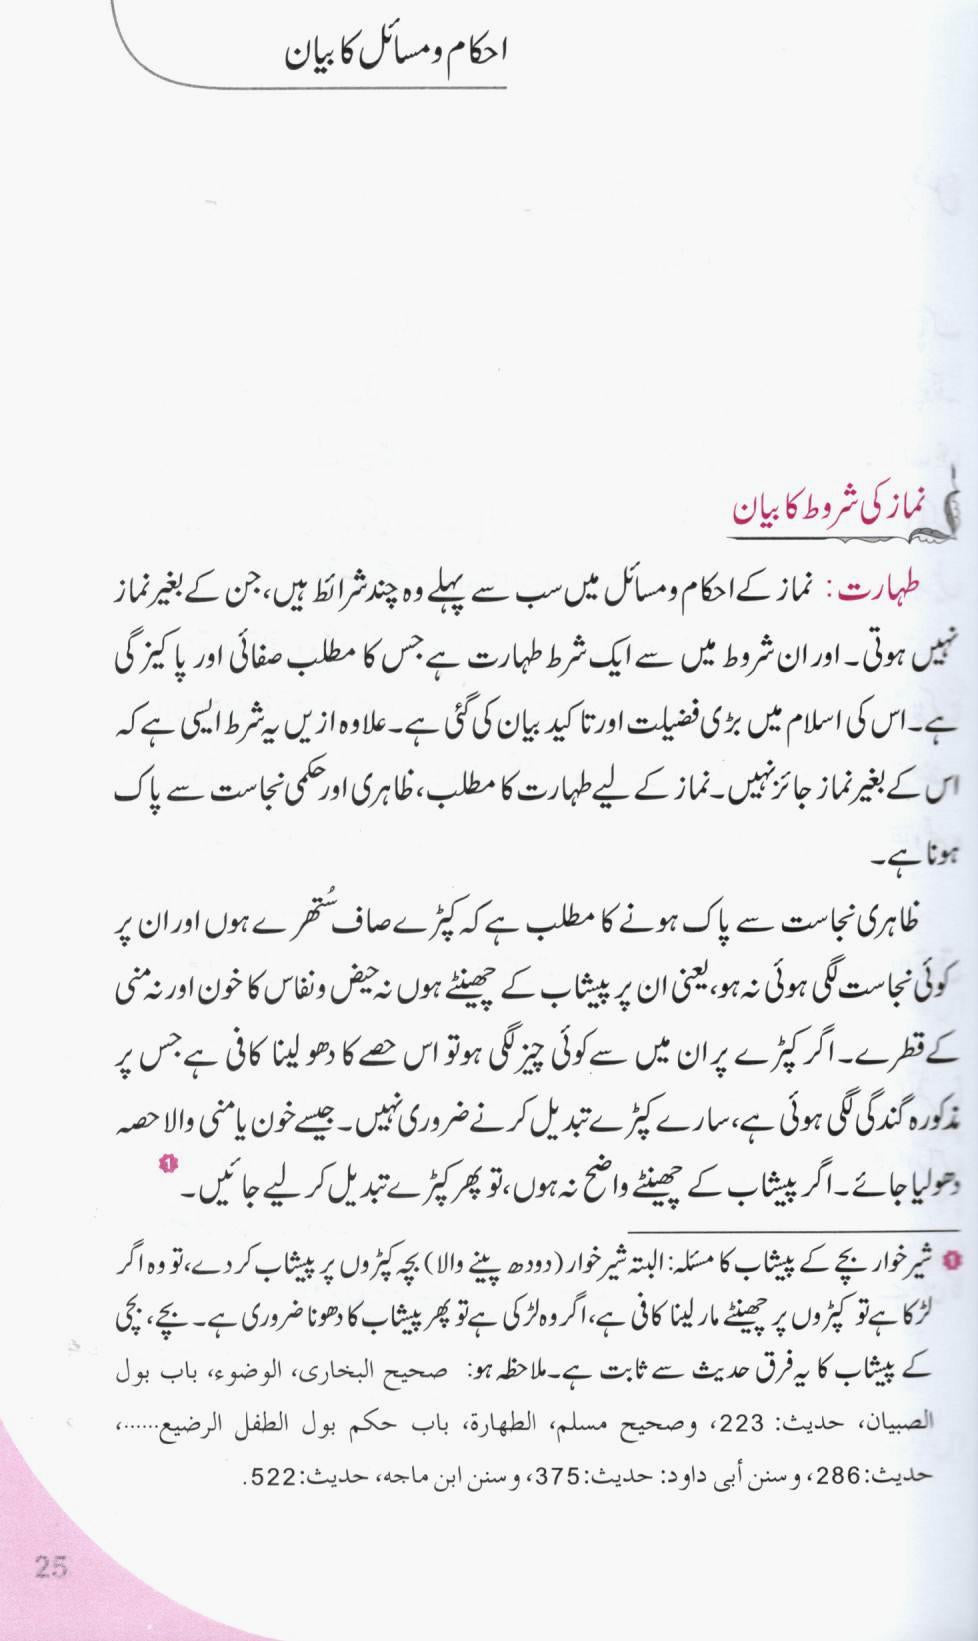 احکام ومسائل کا بیان
نماز کی شروط کا بیان
طہارت: نماز کے احکام ومسائل میں سب سے پہلے وہ چند شرائط ہیں، جن کے بغیر نماز
نہیں ہوتی۔ اور ان شروط میں سے ایک شرط طہارت ہے جس کا مطلب صفائی اور پاکیزگی
ہے۔ اس کی اسلام میں بڑی فضیلت اور تاکید بیان کی گئی ہے۔ علاوہ ازیں یہ شرط ایسی ہے کہ
اس کے بغیر نماز جائز نہیں۔ نماز کے لیے طہارت کا مطلب، ظاہری اور حکمی نجاست سے پاک
ہونا ہے۔
ظاہری نجاست سے پاک ہونے کا مطلب ہے کہ کپڑے صاف سُتھرے ہوں اور ان پر
کوئی نجاست لگی ہوئی نہ ہو، یعنی ان پر پیشاب کے چھینٹے ہوں نہ حیض ونفاس کا خون اور نہ منی
کے قطرے۔ اگر کپڑے پر ان میں سے کوئی چیز لگی ہو تو اس حصے کا دھو لینا کافی ہے جس پر
مذکورہ گندگی لگی ہوئی ہے، سارے کپڑے تبدیل کرنے ضروری نہیں۔ جیسے خون یا منی والا حصہ
دھولیا جائے۔ اگر پیشاب کے چھینٹے واضح نہ ہوں، تو پھر کپڑے تبدیل کر لیے جائیں۔ 1
1 شیر خوار بچے کے پیشاب کا مسئلہ: البتہ شیر خوار (دودھ پینے والا) بچہ کپڑوں پر پیشاب کر دے، تو وہ اگر
لڑکا ہے تو کپڑوں پر چھینٹے مار لینا کافی ہے، اگر وہ لڑکی ہے تو پھر پیشاب کا دھونا ضروری ہے۔ بچے، بچی
کے پیشاب کا یہ فرق حدیث سے ثابت ہے۔ ملاحظہ ہو: صحیح البخاری، الوضوء، باب بول
الصبیان، حدیث: 223، وصحیح مسلم، الطهارة، باب حکم بول الطفل الرضیع......،
حدیث: 286، و سنن أبی داود: حدیث: 375، و سنن ابن ماجه، حدیث: 522.
25